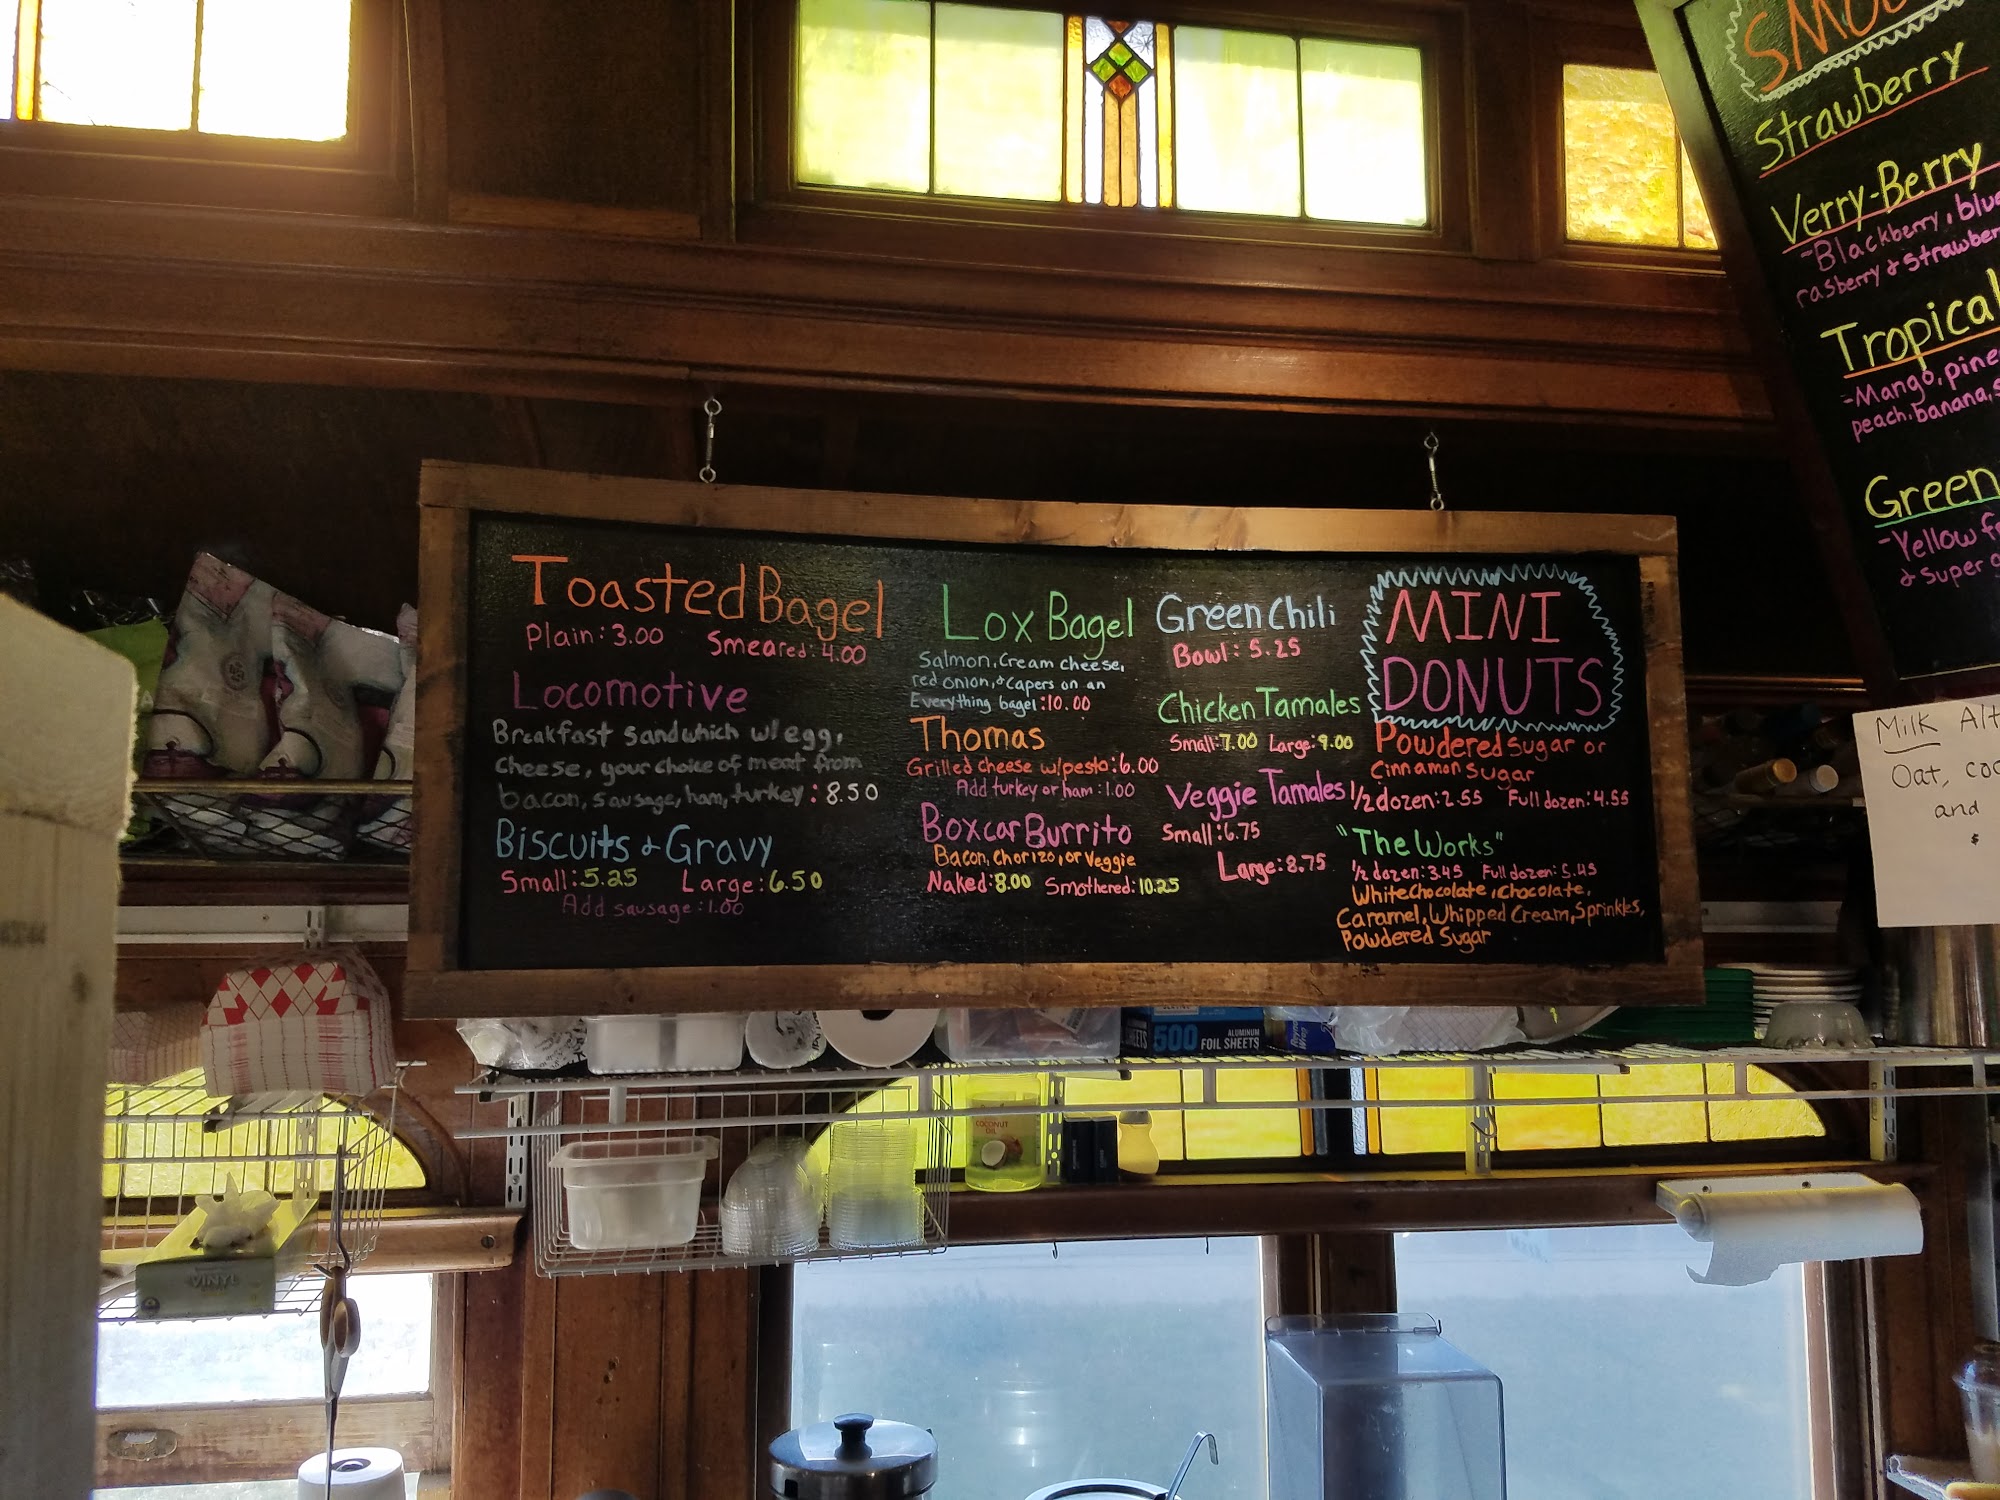 Toasted Bagel
Plain: 3.00 Smeared: 4.00
Locomotive
Breakfast sandwhich w/ egg,
cheese, your choice of meat from
bacon, sausage, ham, turkey: 8.50
Biscuits & Gravy
Small: 5.25 Large: 6.50
Add sausage: 1.00
Lox Bagel
Salmon, Cream cheese,
red onion, & capers on an
Everything bagel: 10.00
Thomas
Grilled cheese w/pesto: 6.00
Add turkey or ham: 1.00
Boxcar Burrito
Bacon, Chorizo, or Veggie
Naked: 8.00 Smothered: 10.25
Green Chili
Bowl: 5.25
Chicken Tamales
Small: 7.00 Large: 9.00
Veggie Tamales
Small: 6.75
Large: 8.75
MINI
DONUTS
Powdered Sugar or
Cinnamon Sugar
1/2 dozen: 2.55 Full dozen: 4.55
"The Works"
1/2 dozen: 3.45 Full dozen: 5.45
White Chocolate, Chocolate,
Caramel, Whipped Cream, Sprinkles,
Powdered Sugar
Strawberry
Verry-Berry
-Blackberry, blue
rasberry & strawber
Tropical
-Mango, pine
peach, banana,
Green
-Yellow
& super
Milk Alt
Oat,
and
$
500 ALUMINUM
FOIL SHEETS
COCONUT
OIL
VINYL